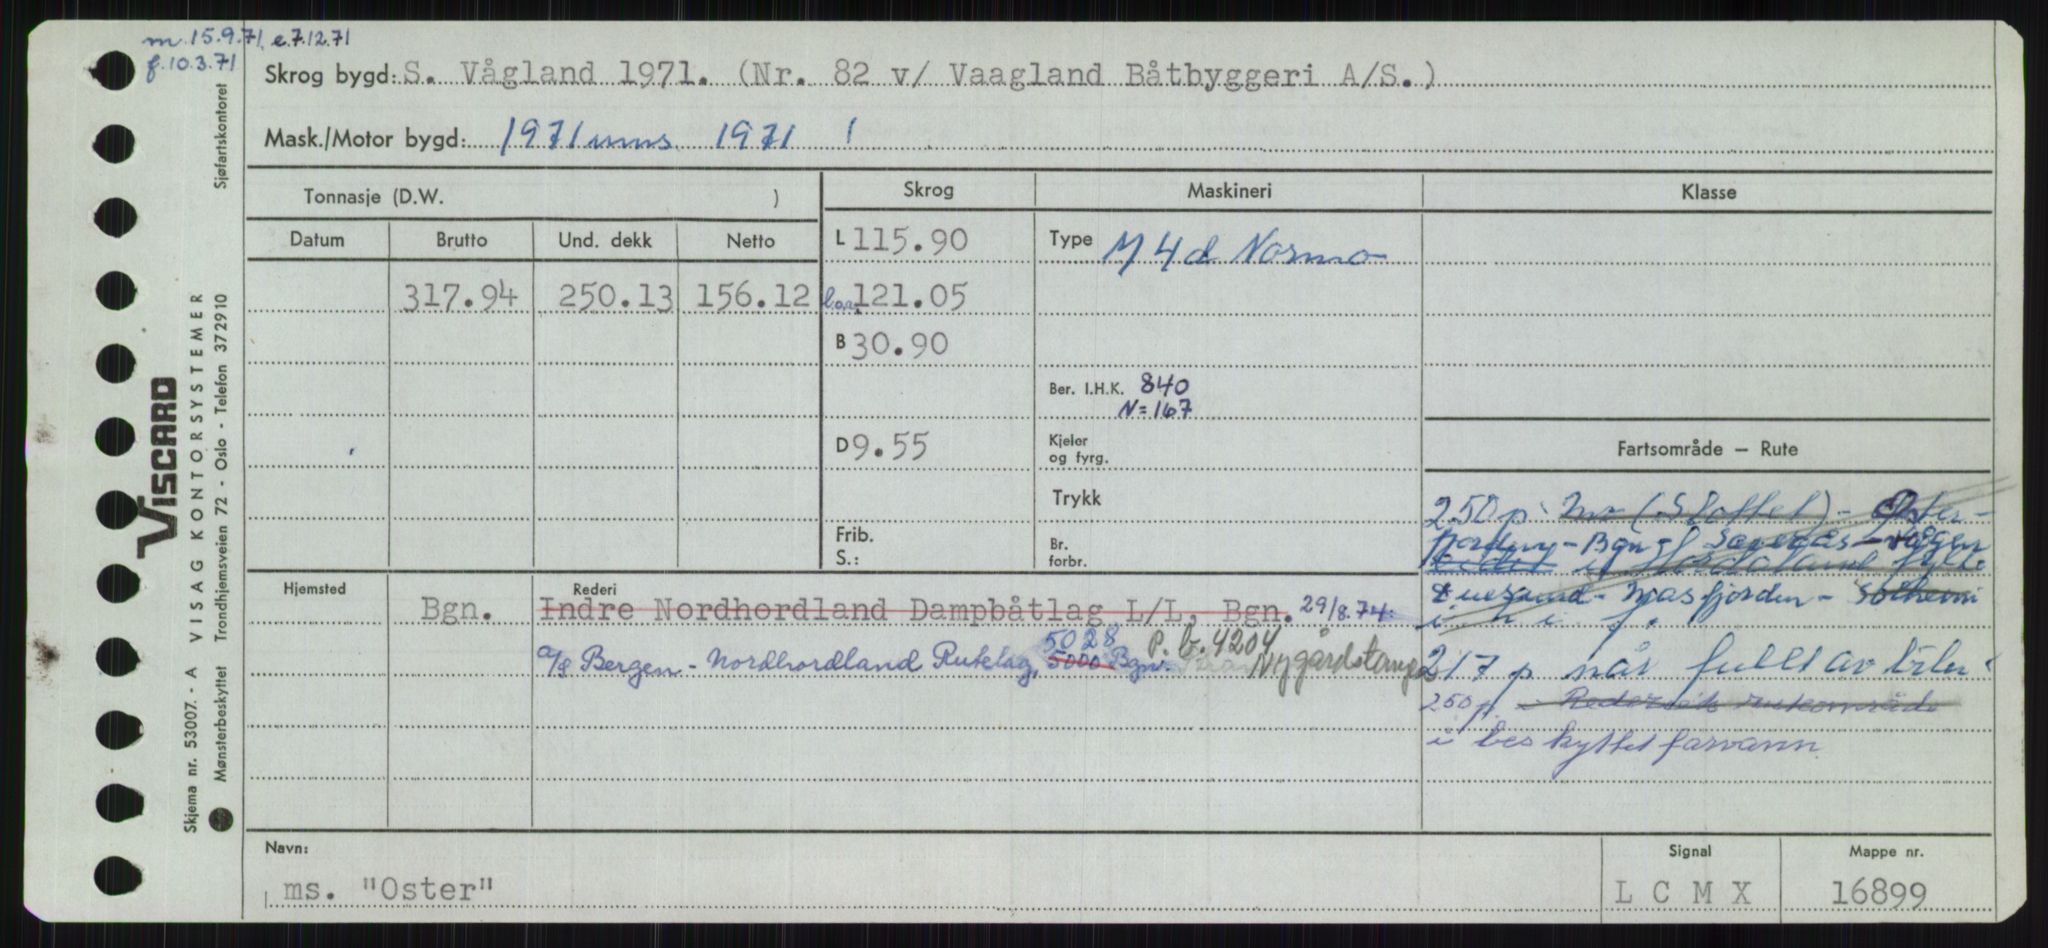 m. 15.9.71, e.7.12.71
f. 10.3.71
Skrog bygd: S. Vågland 1971. (Nr. 82 v/ Vaagland Båtbyggeri A/S.)
Mask./Motor bygd: 1971 mns 1971 1
Tonnasje (D.W. )
Skrog Maskineri Klasse
Datum Brutto Und. dekk Netto
L 115.90 Type M 4 d Normo
317.94 250.13 156.12 121.05
B 30.90
Ber. I.H.K. 840
N=167
D 9.55 Kjeler og fyrg.
Fartsområde – Rute
Trykk
Frib.
S.:
Br. forbr.
250 p (Slottet) - Oster-
fjorden - Bgn
i Hordaland fylke
- Masfjorden -
217 p når fullt av biler
250 p. Rederiets ruteområde
i beskyttet farvann
Hjemsted Rederi
Bgn. Indre Nordhordland Dampbåtlag L/L, Bgn. 29/8.74.
a/s Bergen - Nordhordland Rutelag, 5000 5028 Bgn. P.b. 4204 Nygårdstangen
Navn: Signal Mappe nr.
ms. "Oster" L C M X 16899
Sjøfartskontoret
VISCARD
VISAG KONTORSYSTEMER
Trondhjemsveien 72 - Oslo - Telefon 372910
Skjema nr. 53007. - A
Mønsterbeskyttet